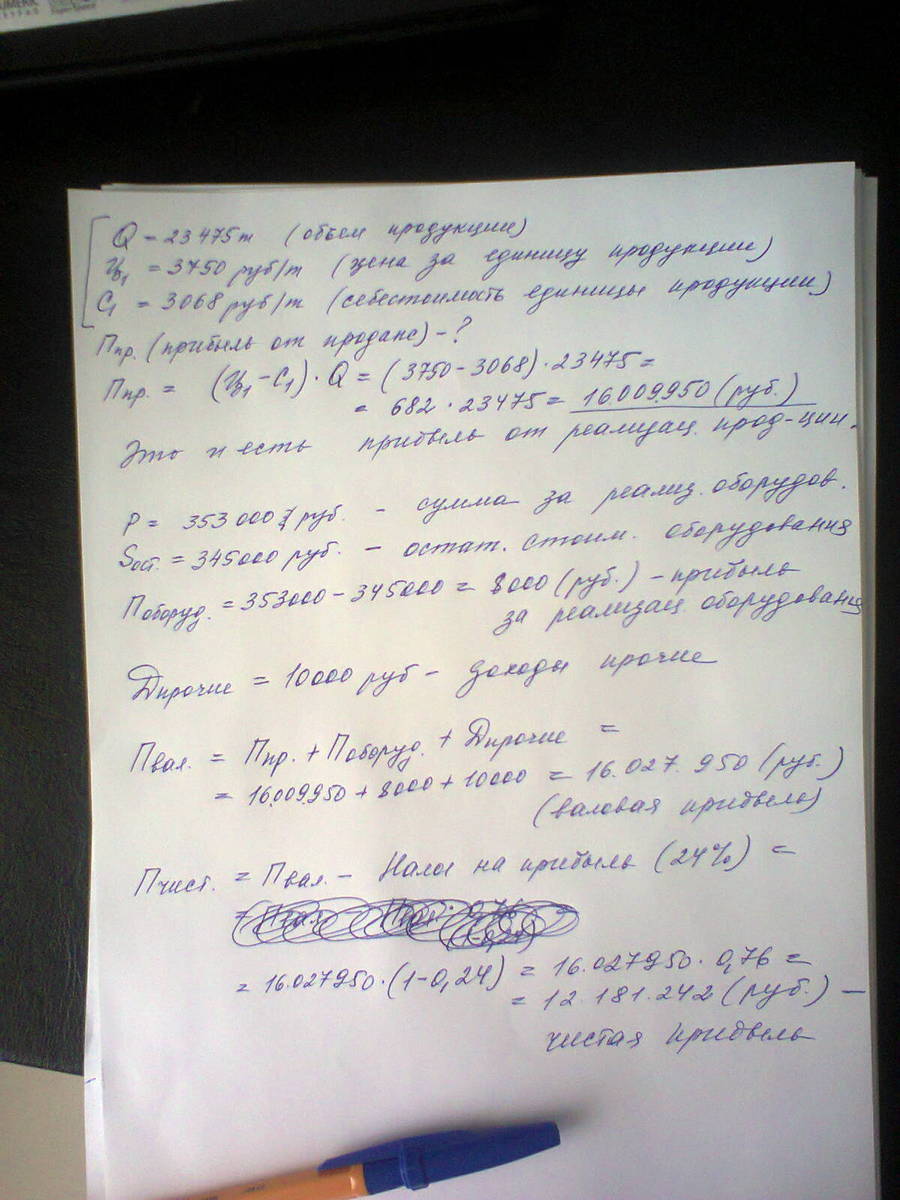 Q = 23475 т (объем продукции)
Ц₁ = 3750 руб/т (цена за единицу продукции)
С₁ = 3068 руб/т (себестоимость единицы продукции)
Ппр. (прибыль от продажс) - ?
Ппр. = (Ц₁ - С₁) · Q = (3750 - 3068) · 23475 =
= 682 · 23475 = 16009.950 (руб.)
Это и есть прибыль от реализац. прод-ции.
P = 353000 руб. - сумма за реализ. оборудов.
Sост. = 345000 руб. - остат. стоим. оборудования
Поборуд. = 353000 - 345000 = 8000 (руб.) - прибыль
за реализац. оборудования
Дпрочие = 10000 руб - доходы прочие
Пвал. = Ппр. + Поборуд. + Дпрочие =
= 16.009.950 + 8000 + 10000 = 16.027.950 (руб.)
(валовая прибыль)
Пчист. = Пвал. - Налог на прибыль (24%) =
= 16.027950 · (1-0,24) = 16.027950 · 0,76 =
= 12.181.242 (руб.) -
чистая прибыль